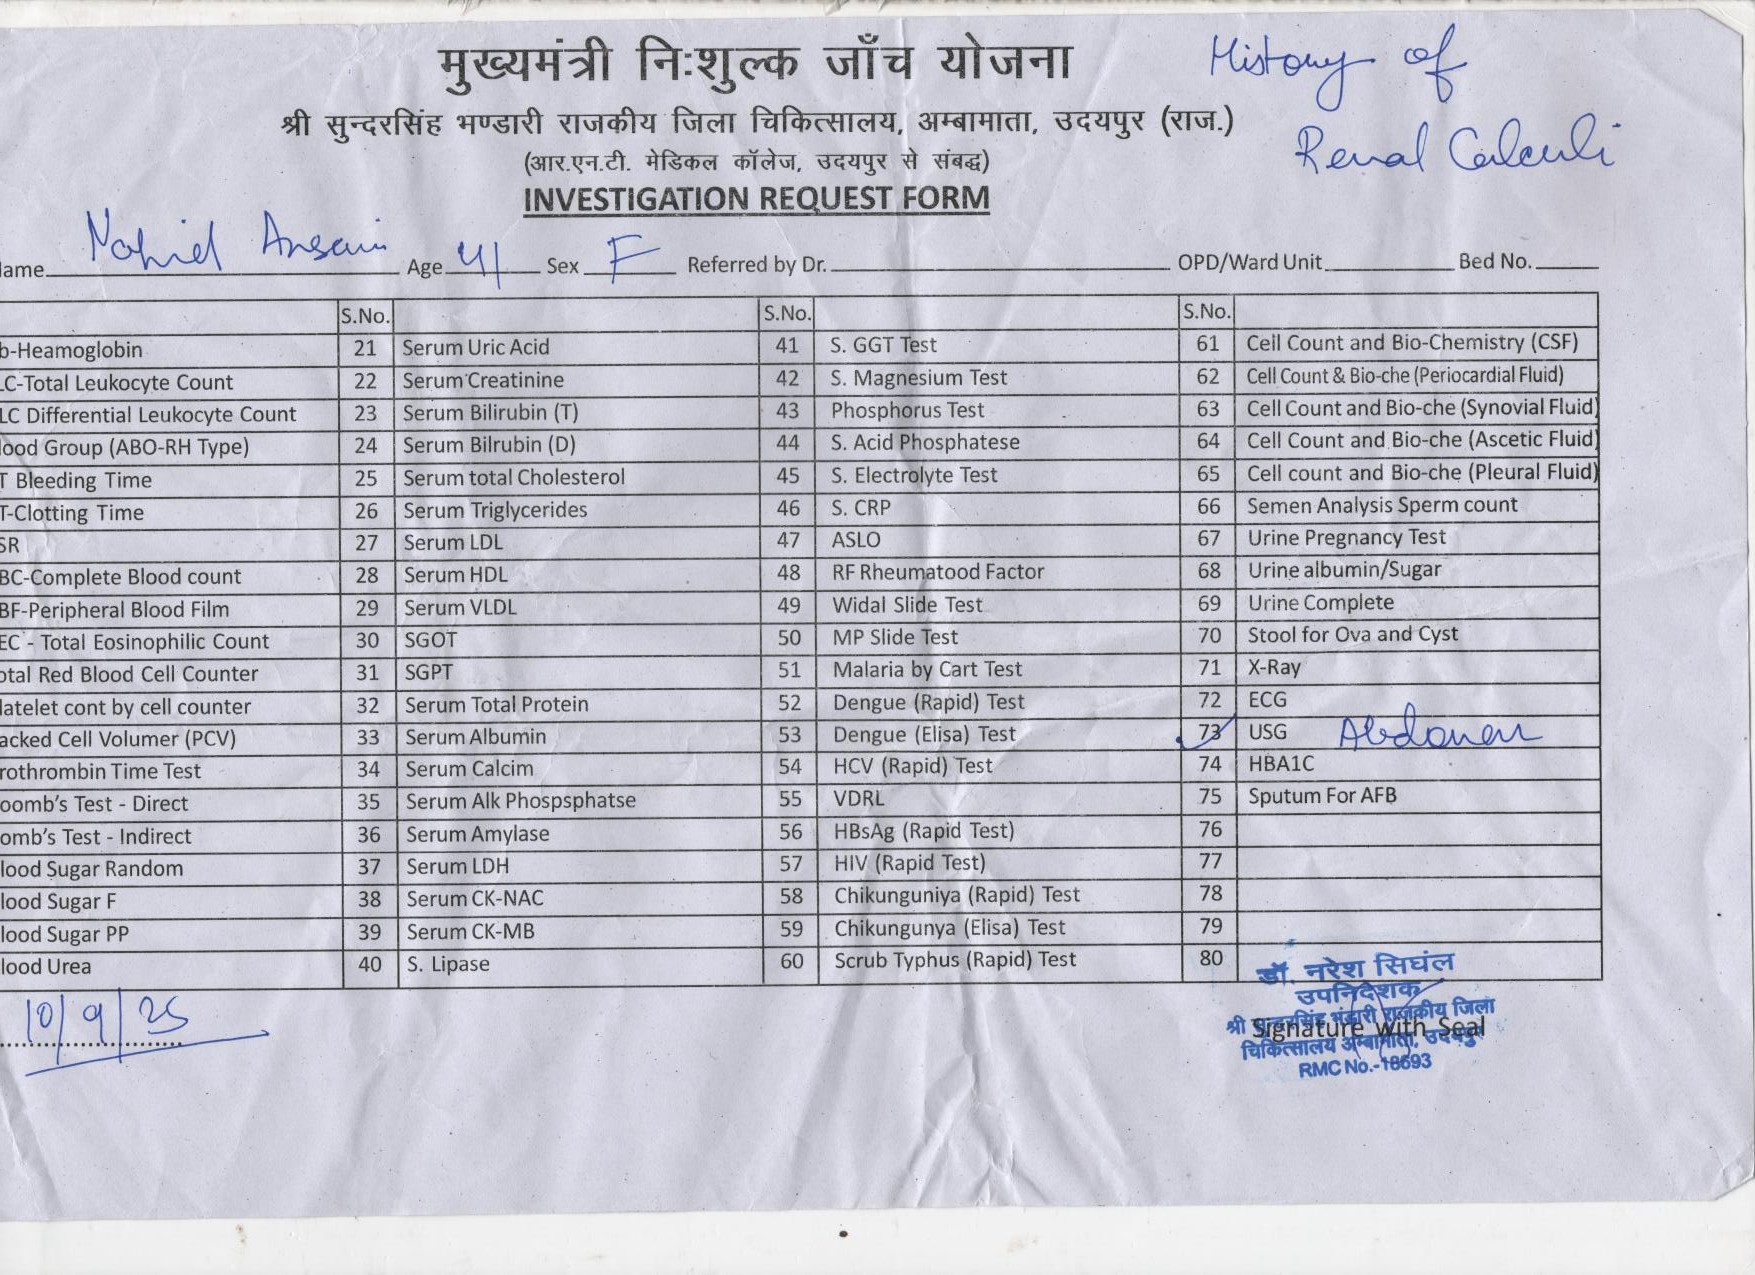 मुख्यमंत्री निःशुल्क जाँच योजना
History of
श्री सुन्दरसिंह भण्डारी राजकीय जिला चिकित्सालय, अम्बामाता, उदयपुर (राज.)
Renal Calculi
(आर.एन.टी. मेडिकल कॉलेज, उदयपुर से संबद्ध)
INVESTIGATION REQUEST FORM
lame Nahid Ansari Age 41 Sex F Referred by Dr. OPD/Ward Unit Bed No.
S.No. S.No. S.No.
b-Heamoglobin 21 Serum Uric Acid 41 S. GGT Test 61 Cell Count and Bio-Chemistry (CSF)
LC-Total Leukocyte Count 22 Serum Creatinine 42 S. Magnesium Test 62 Cell Count & Bio-che (Periocardial Fluid)
LC Differential Leukocyte Count 23 Serum Bilirubin (T) 43 Phosphorus Test 63 Cell Count and Bio-che (Synovial Fluid)
lood Group (ABO-RH Type) 24 Serum Bilrubin (D) 44 S. Acid Phosphatese 64 Cell Count and Bio-che (Ascetic Fluid)
T Bleeding Time 25 Serum total Cholesterol 45 S. Electrolyte Test 65 Cell count and Bio-che (Pleural Fluid)
T-Clotting Time 26 Serum Triglycerides 46 S. CRP 66 Semen Analysis Sperm count
SR 27 Serum LDL 47 ASLO 67 Urine Pregnancy Test
BC-Complete Blood count 28 Serum HDL 48 RF Rheumatood Factor 68 Urine albumin/Sugar
BF-Peripheral Blood Film 29 Serum VLDL 49 Widal Slide Test 69 Urine Complete
EC - Total Eosinophilic Count 30 SGOT 50 MP Slide Test 70 Stool for Ova and Cyst
otal Red Blood Cell Counter 31 SGPT 51 Malaria by Cart Test 71 X-Ray
latelet cont by cell counter 32 Serum Total Protein 52 Dengue (Rapid) Test 72 ECG
acked Cell Volumer (PCV) 33 Serum Albumin 53 Dengue (Elisa) Test 73 USG Abdomen
rothrombin Time Test 34 Serum Calcim 54 HCV (Rapid) Test 74 HBA1C
oomb's Test - Direct 35 Serum Alk Phospsphatse 55 VDRL 75 Sputum For AFB
omb's Test - Indirect 36 Serum Amylase 56 HBsAg (Rapid Test) 76
lood Sugar Random 37 Serum LDH 57 HIV (Rapid Test) 77
lood Sugar F 38 Serum CK-NAC 58 Chikunguniya (Rapid) Test 78
lood Sugar PP 39 Serum CK-MB 59 Chikungunya (Elisa) Test 79
lood Urea 40 S. Lipase 60 Scrub Typhus (Rapid) Test 80
10/9/25
डॉ. नरेश सिघंल
उपनिदेशक
श्री सुन्दरसिंह भंडारी राजकीय जिला
Signature with Seal
चिकित्सालय अम्बामाता, उदयपुर
RMC No.-18693